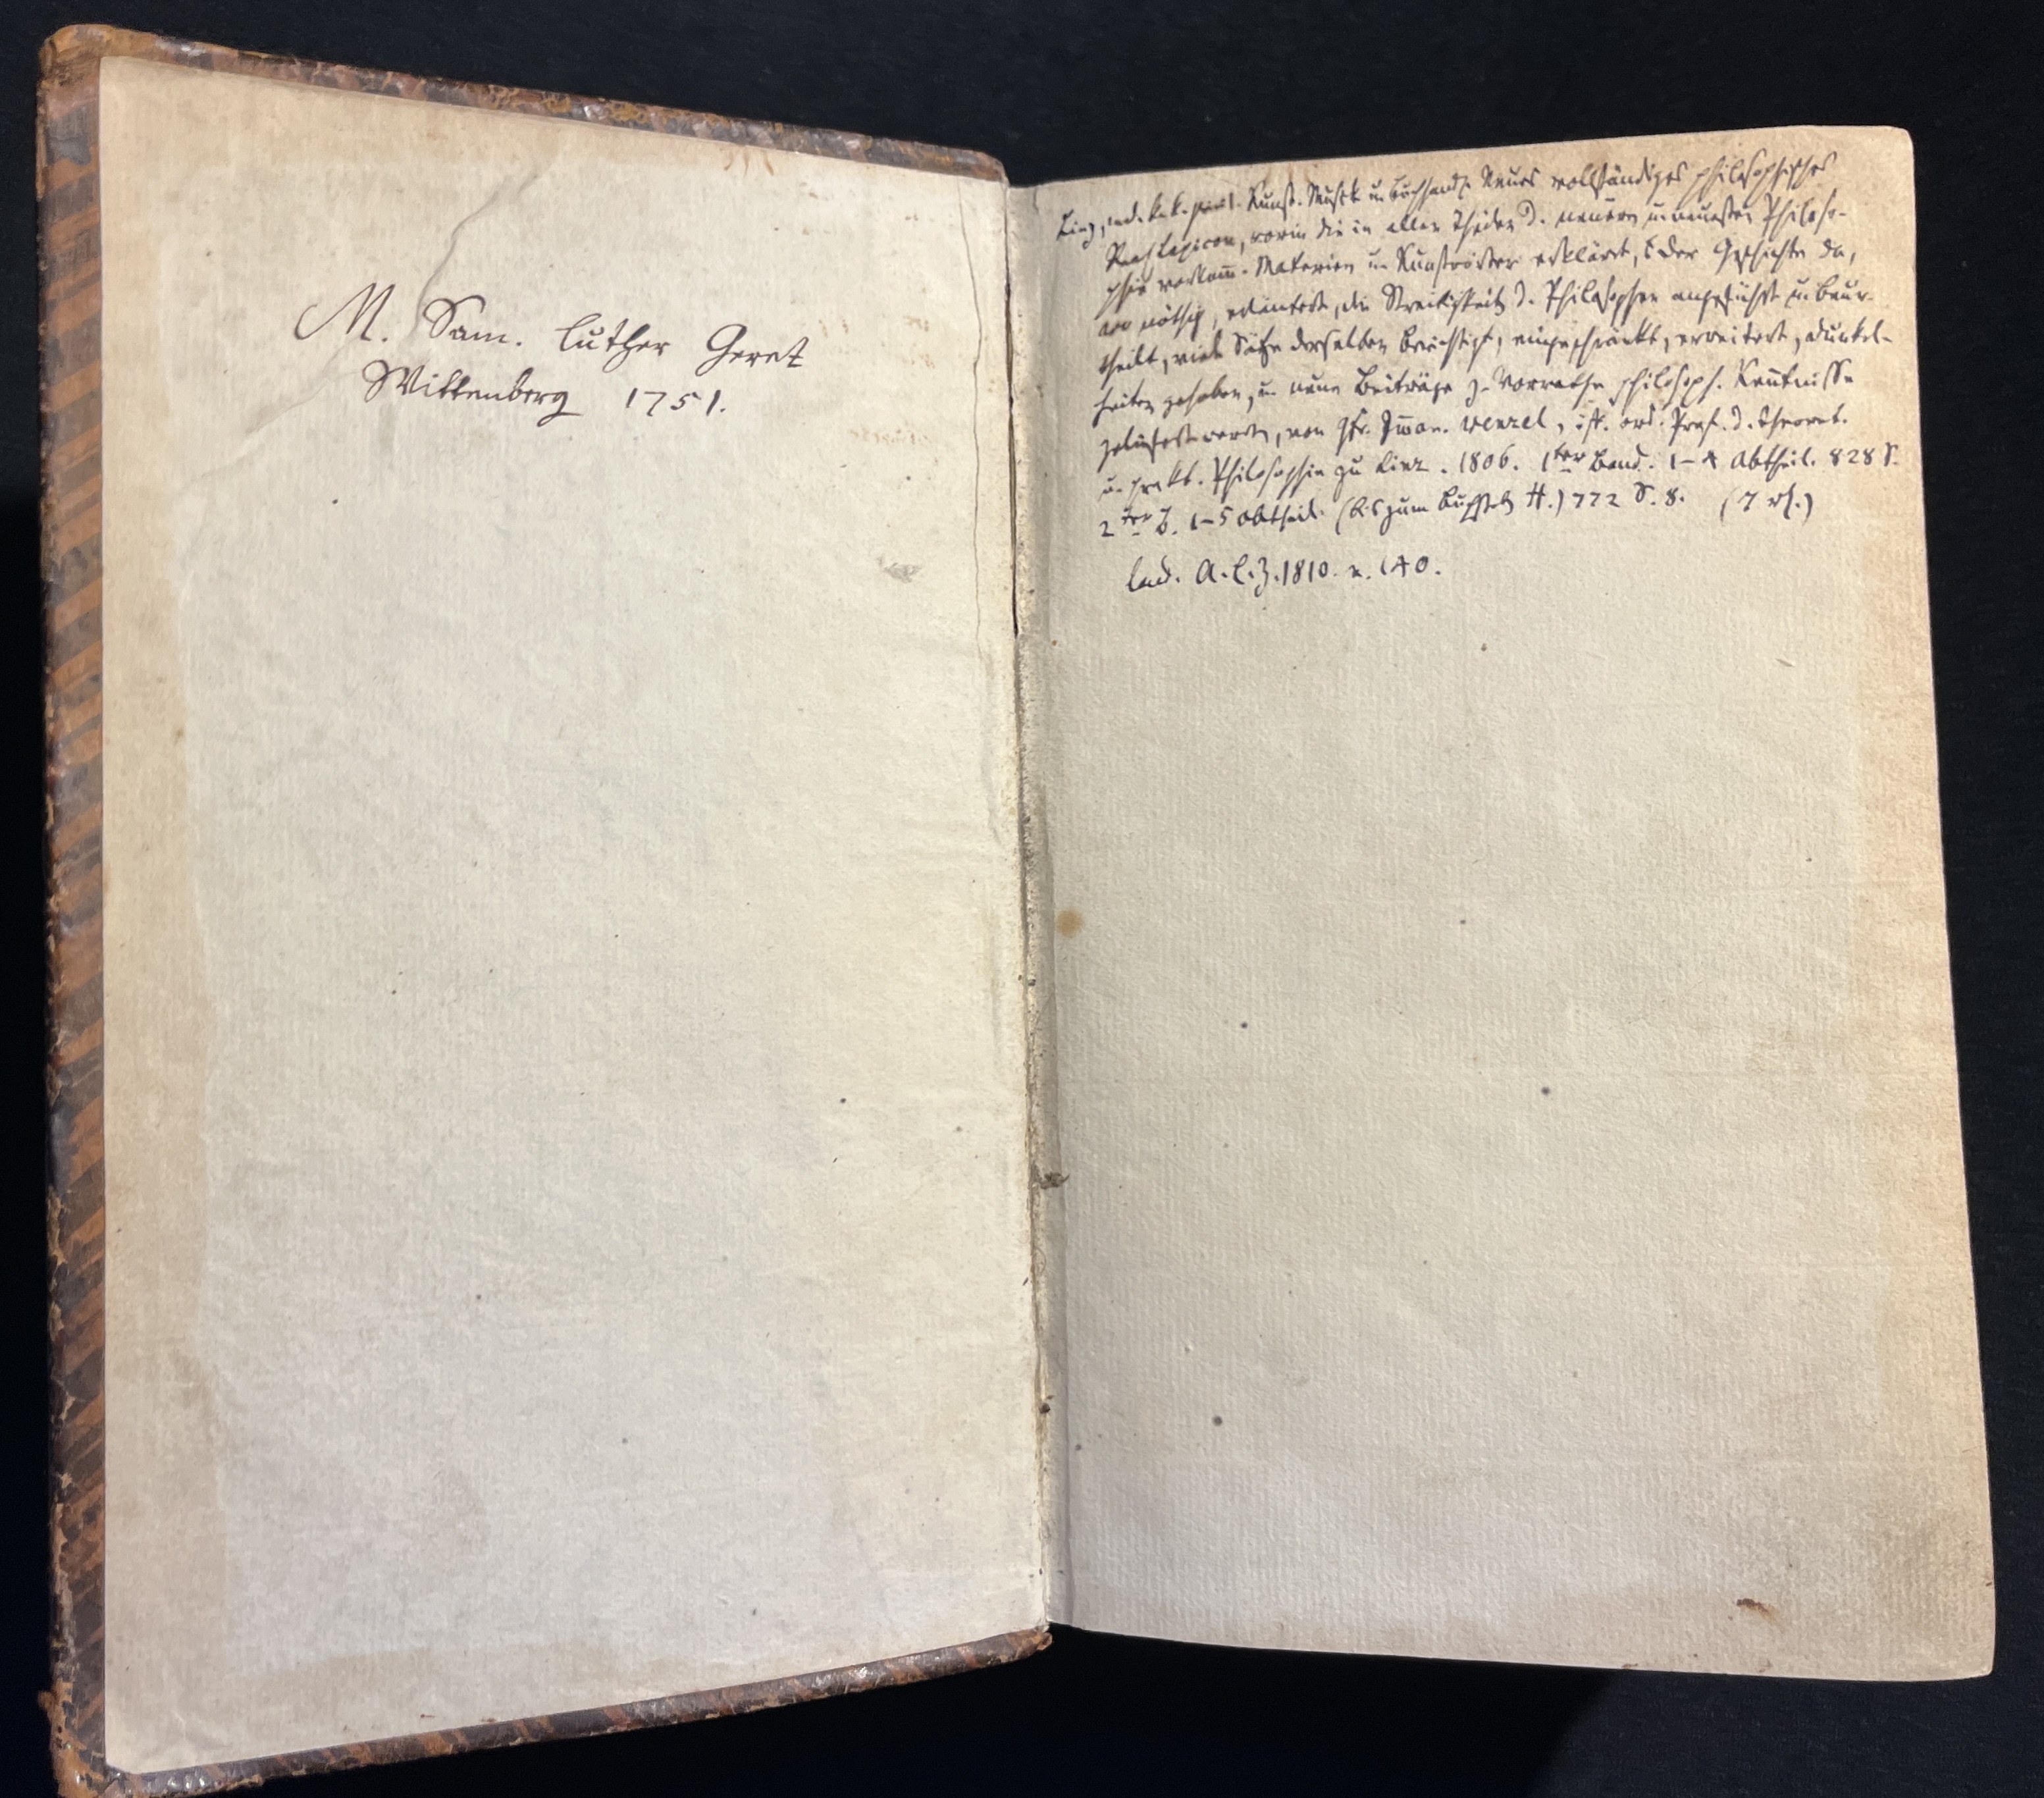 M. Sam. Luther Geret
Wittenberg 1751.
Linz, in d. k. k. privil. Kunst- Musik- u. Buchhandl. Neues vollständiges philosophisches
Real Lexicon, worin die in allen Theilen d. neuern u. neuesten Philoso-
phie vorkom̅. Materien u. Kunstwörter erklärt, der Geschichte da,
wo nöthig, erläutert, die Streitigkeit d. Philosophen angeführt u. beur-
theilt, viele Sätze derselben berichtigt, eingeschränkt, erweitert, Dunkel-
heiten gehoben, u. neue Beiträge z. Vorrathe philosoph. Ken̅tnisse
geliefert werden, von Gfr. Im̅an. Wenzel, öff. ord. Prof. d. theoret.
u. prakt. Philosophie zu Linz. 1806. 1ter Band. 1–4 Abtheil. 828 S.
2ter B. 1–5 Abtheil. (bis zum Buchstab H.) 772 S. 8. (7 rh.)
A. L. Z. 1810. n. 140.